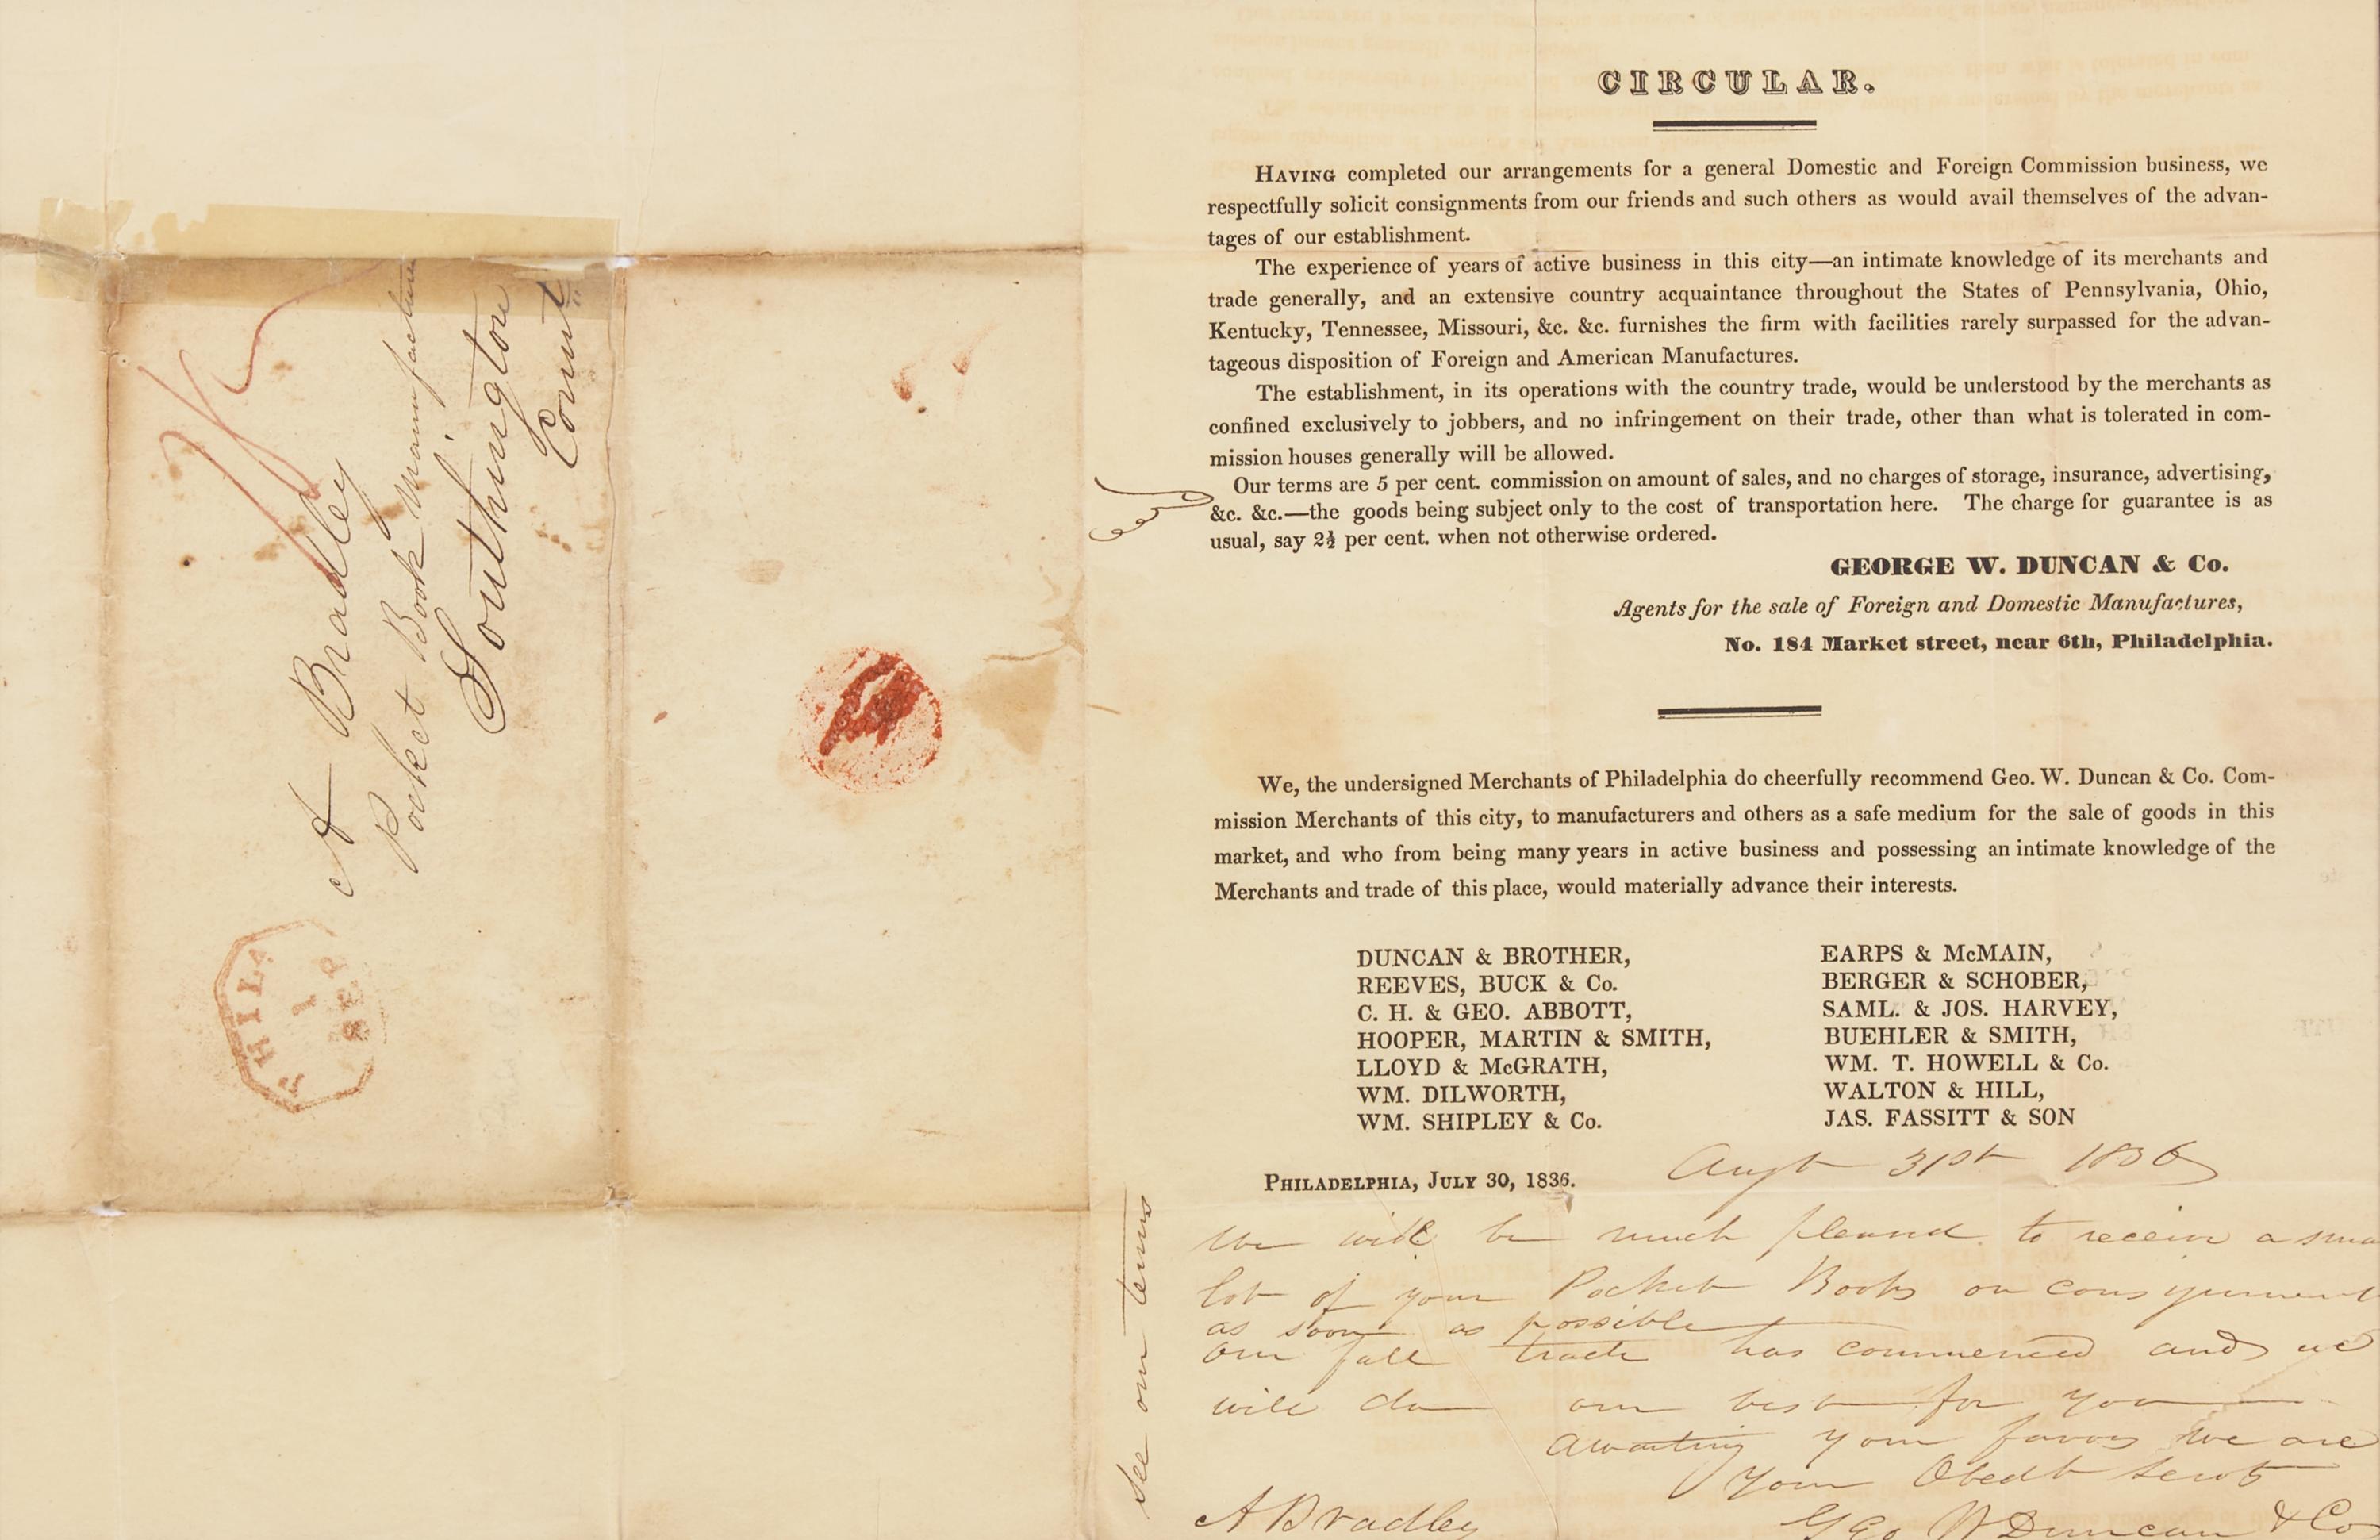 A Bradley
Pocket Book Manufacturer
Southington
Connt
PHILA
1
SEP
CIRCULAR.
HAVING completed our arrangements for a general Domestic and Foreign Commission business, we
respectfully solicit consignments from our friends and such others as would avail themselves of the advan-
tages of our establishment.
The experience of years of active business in this city—an intimate knowledge of its merchants and
trade generally, and an extensive country acquaintance throughout the States of Pennsylvania, Ohio,
Kentucky, Tennessee, Missouri, &c. &c. furnishes the firm with facilities rarely surpassed for the advan-
tageous disposition of Foreign and American Manufactures.
The establishment, in its operations with the country trade, would be understood by the merchants as
confined exclusively to jobbers, and no infringement on their trade, other than what is tolerated in com-
mission houses generally will be allowed.
Our terms are 5 per cent. commission on amount of sales, and no charges of storage, insurance, advertising,
&c. &c.—the goods being subject only to the cost of transportation here. The charge for guarantee is as
usual, say 2½ per cent. when not otherwise ordered.
GEORGE W. DUNCAN & Co.
Agents for the sale of Foreign and Domestic Manufactures,
No. 184 Market street, near 6th, Philadelphia.
We, the undersigned Merchants of Philadelphia do cheerfully recommend Geo. W. Duncan & Co. Com-
mission Merchants of this city, to manufacturers and others as a safe medium for the sale of goods in this
market, and who from being many years in active business and possessing an intimate knowledge of the
Merchants and trade of this place, would materially advance their interests.
DUNCAN & BROTHER,
REEVES, BUCK & Co.
C. H. & GEO. ABBOTT,
HOOPER, MARTIN & SMITH,
LLOYD & McGRATH,
WM. DILWORTH,
WM. SHIPLEY & Co.
EARPS & McMAIN,
BERGER & SCHOBER,
SAML. & JOS. HARVEY,
BUEHLER & SMITH,
WM. T. HOWELL & Co.
WALTON & HILL,
JAS. FASSITT & SON
PHILADELPHIA, JULY 30, 1836.
Augt 31st 1836
We will be much pleased to receive a sma
lot of your Pocket Books on consignment
as soon as possible
our fall trade has commenced and we
will do our best for you
Awaiting your favors we are
Your Obedt Servts
Geo W Duncan & Co
A Bradley
See our terms